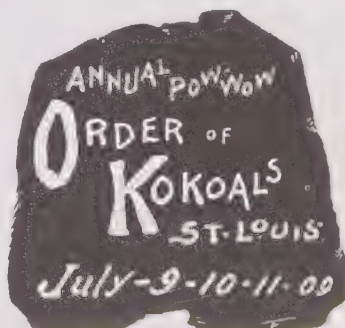 ANNUAL POW-WOW
ORDER OF
KOKOALS
ST. LOUIS
July-9-10-11-09